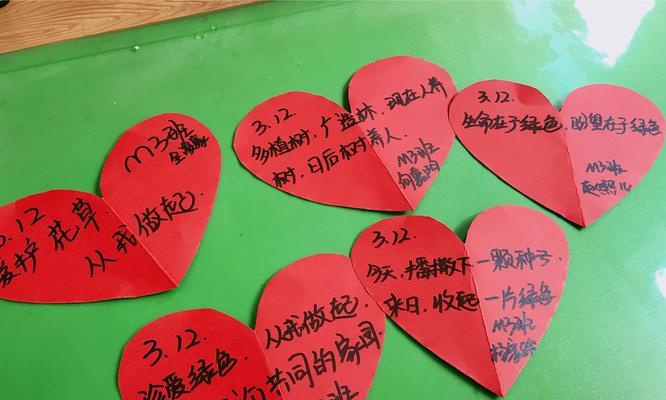 M3班
3.12
爱护花草.
从我做起.
3.12.
多植树,广造林,现在人养
树,日后树养人.
M3班
3.12.
生命在于绿色,盼望在于绿色.
M3班
3.12.
今天,播撒下一颗种子.
来日,收起一片绿色
M3班
3.12.
珍爱绿色.
从我做起
共同的家园